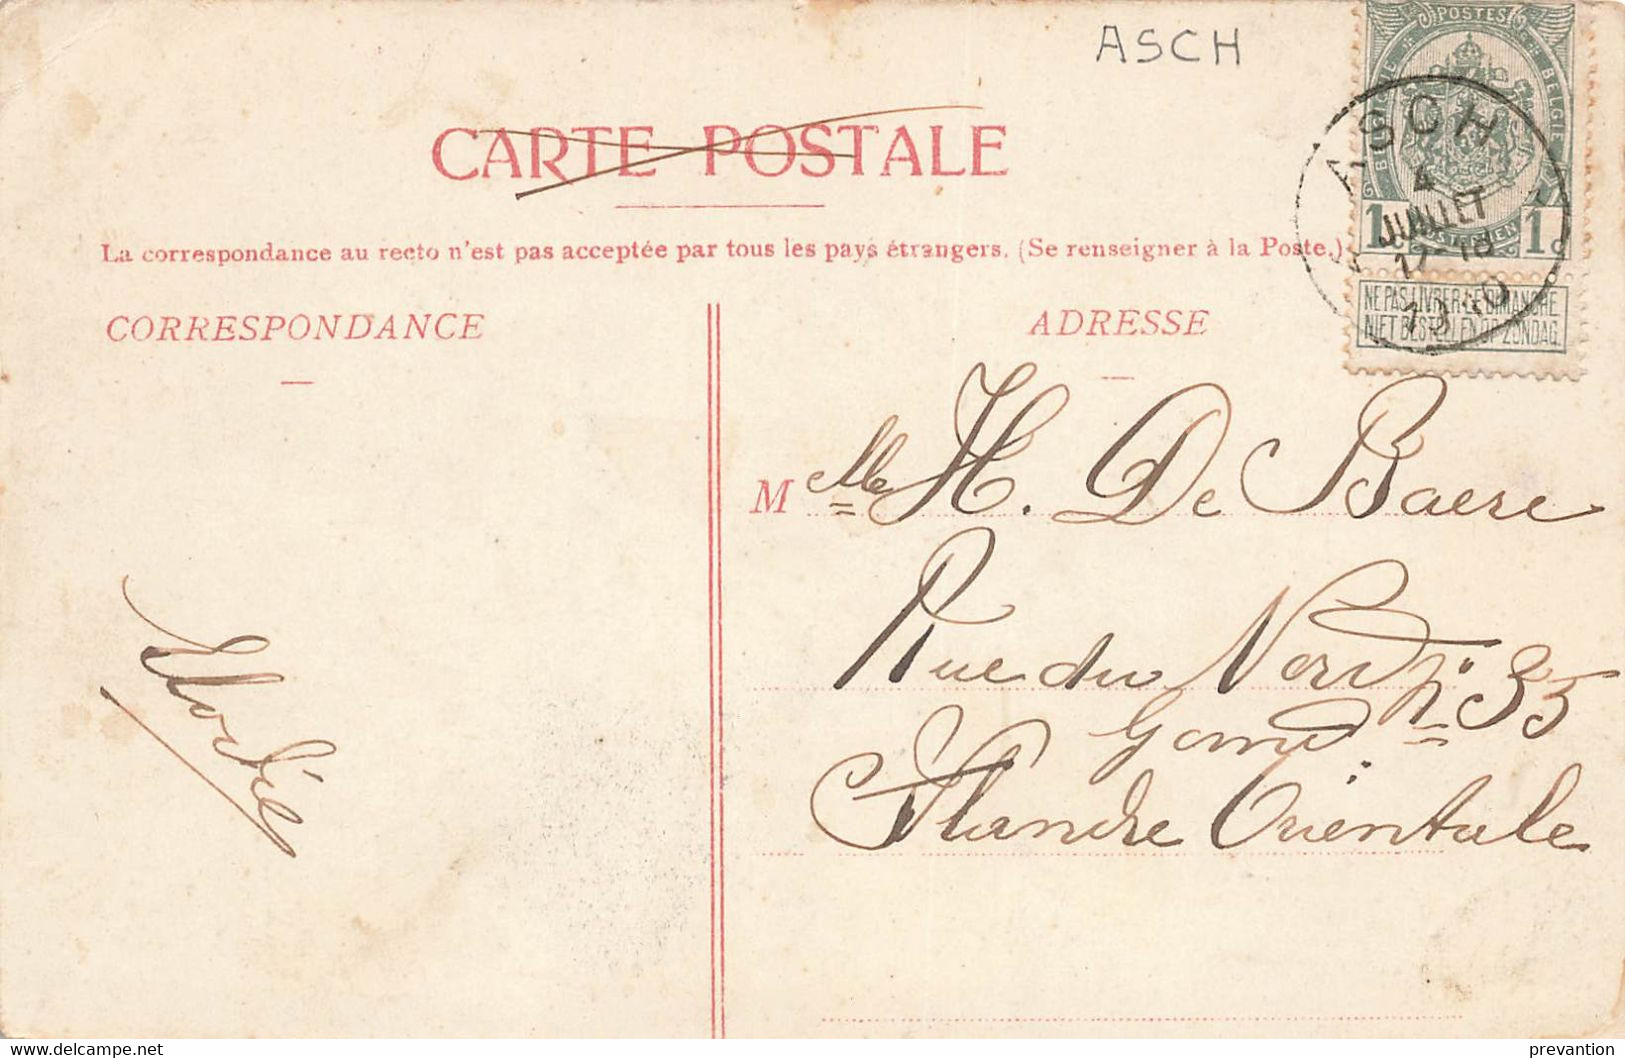 ASCH
POSTES
BELGIQUE
BELGIË
1c 1c
ASCH
4
JUILLET
17-18
1910
NE PAS LIVRER LE DIMANCHE
NIET BESTELLEN OP ZONDAG.
CARTE POSTALE
La correspondance au recto n'est pas acceptée par tous les pays étrangers. (Se renseigner à la Poste.)
CORRESPONDANCE
ADRESSE
Melle H. De Baere
Rue du Nord n° 35
Gand
Flandre Orientale
Elodie
delcampe.net
prevantion